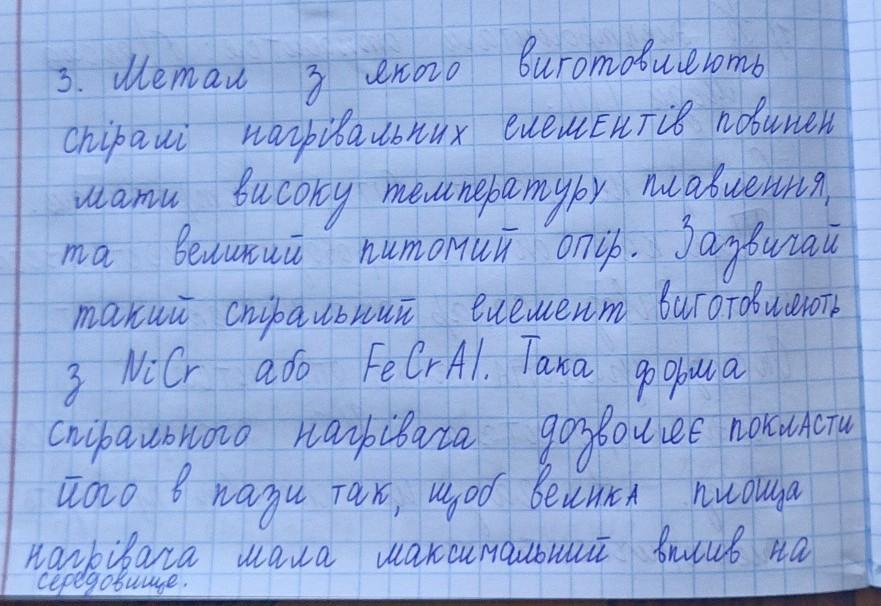 3. Метал з якого виготовляють
спіралі нагрівальних елементів повинен
мати високу температуру плавлення,
та великий питомий опір. Зазвичай
такий спіральний елемент виготовляють
з NiCr або FeCrAl. Така форма
спірального нагрівача дозволяє покласти
його в пази так, щоб велика площа
нагрівача мала максимальний вплив на
середовище.